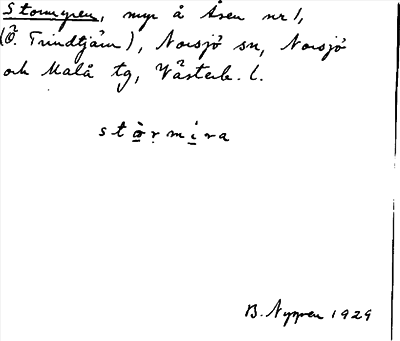 Stormyren, myr å Åsen nr 1,
(Ö. Trindtjärn), Norsjö sn, Norsjö
och Malå tg, Västerb. l.
stòr̥mi̇ra
B. Nygren 1929